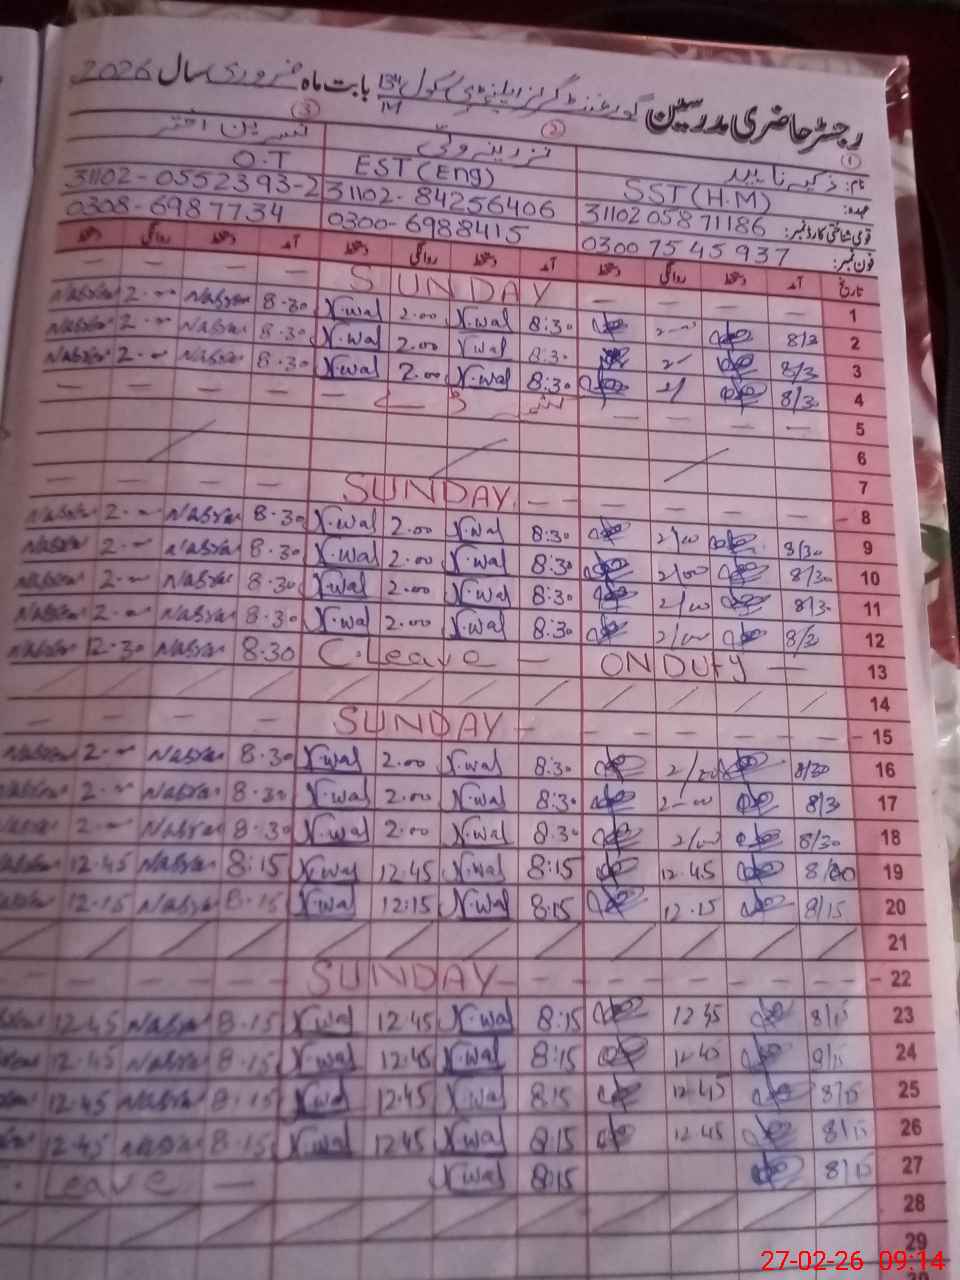 رجسٹر حاضری مدرسین گورنمنٹ گرلز ایلیمنٹری سکول 134/M بابت ماہ فروری سال 2026
① ② ③
نام:
نسرین اختر
عہدہ: SST (H.M) EST (Eng) O.T
قومی شناختی کارڈ نمبر: 31102 05871186 31102-84256406 31102-0552393-2
فون نمبر: 0300 7545937 0300-6988415 0308-6987734
تاریخ آمد دستخط روانگی دستخط آمد دستخط روانگی دستخط آمد دستخط روانگی دستخط
1 — — — — SUNDAY — — — —
2 8/3 2-00 8:30 N.wal 2.00 N.wal 8.30 Nasren 2.00 Nasren
3 8/30 8.30 N.wal 2.00 N.wal 8.30 Nasren 2.00 Nasren
4 8/30 2/ 8:30 N.wal 2.00 N.wal 8.30 Nasren 2.00 Nasren
5 — — — — — — — —
6
7
8 — — SUNDAY — — — — —
9 8/30 2/00 8:30 N.wal 2.00 N.wal 8.30 Nasren 2.00 Nasren
10 8/30 2/00 8:30 N.wal 2.00 N.wal 8.30 Nasren 2.00 Nasren
11 8/3 2/00 8:30 N.wal 2.00 N.wal 8.30 Nasren 2.00 Nasren
12 8/3 2/00 8:30 N.wal 2.00 N.wal 8.30 Nasren 2.00 Nasren
13 ON Duty — C.Leave — 8.30 Nasren 12.30 Nasren
14
15 — — — — SUNDAY — — — —
16 8/30 2/00 8:30 N.wal 2.00 N.wal 8.30 Nasren 2.00 Nasren
17 8/3 2-00 8:30 N.wal 2.00 N.wal 8.30 Nasren 2.00 Nasren
18 8/30 2/00 8.30 N.wal 2.00 N.wal 8.30 Nasren 2.00 Nasren
19 12.45 8:15 N.wal 12.45 N.wal 8:15 Nasren 12.45 Nasren
20 8/15 12.15 8:15 N.wal 12:15 N.wal 8.15 Nasren 12.15 Nasren
21
22 — — — — SUNDAY — — — —
23 8/15 12.45 8:15 N.wal 12.45 N.wal 8.15 Nasren 12.45 Nasren
24 12.45 8:15 N.wal 12.45 N.wal 8.15 Nasren 12.45 Nasren
25 8/15 12.45 8:15 N.wal 12.45 N.wal 8.15 Nasren 12.45 Nasren
26 8/15 12.45 8:15 N.wal 12.45 N.wal 8.15 Nasren 12.45 Nasren
27 8/15 8:15 N.wal — Leave
28
29
27-02-26 09:14